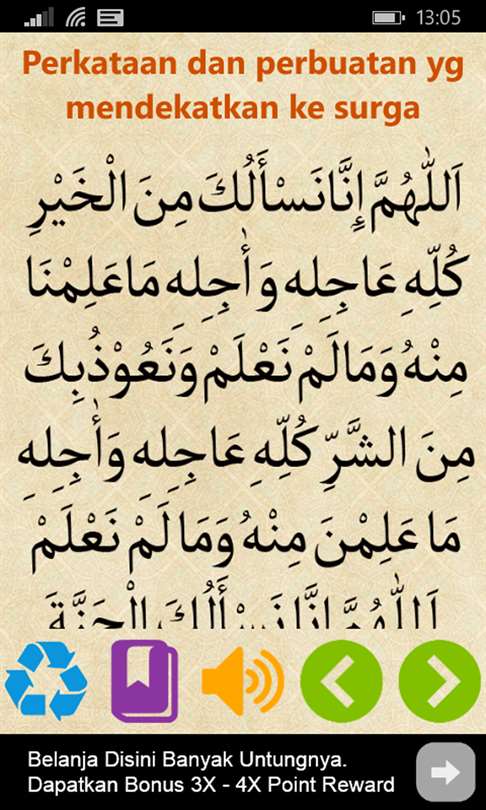 13:05
Perkataan dan perbuatan yg
mendekatkan ke surga
اَللّٰهُمَّ اِنَّا نَسْأَلُكَ مِنَ الْخَيْرِ
كُلِّهِ عَاجِلِهِ وَأٰجِلِهِ مَا عَلِمْنَا
مِنْهُ وَمَالَمْ نَعْلَمْ وَنَعُوْذُبِكَ
مِنَ الشَّرِّ كُلِّهِ عَاجِلِهِ وَأٰجِلِهِ
مَا عَلِمْنَ مِنْهُ وَمَا لَمْ نَعْلَمْ
اَللّٰهُمَّ اِنَّا نَسْأَلُكَ الْجَنَّةَ
Belanja Disini Banyak Untungnya.
Dapatkan Bonus 3X - 4X Point Reward